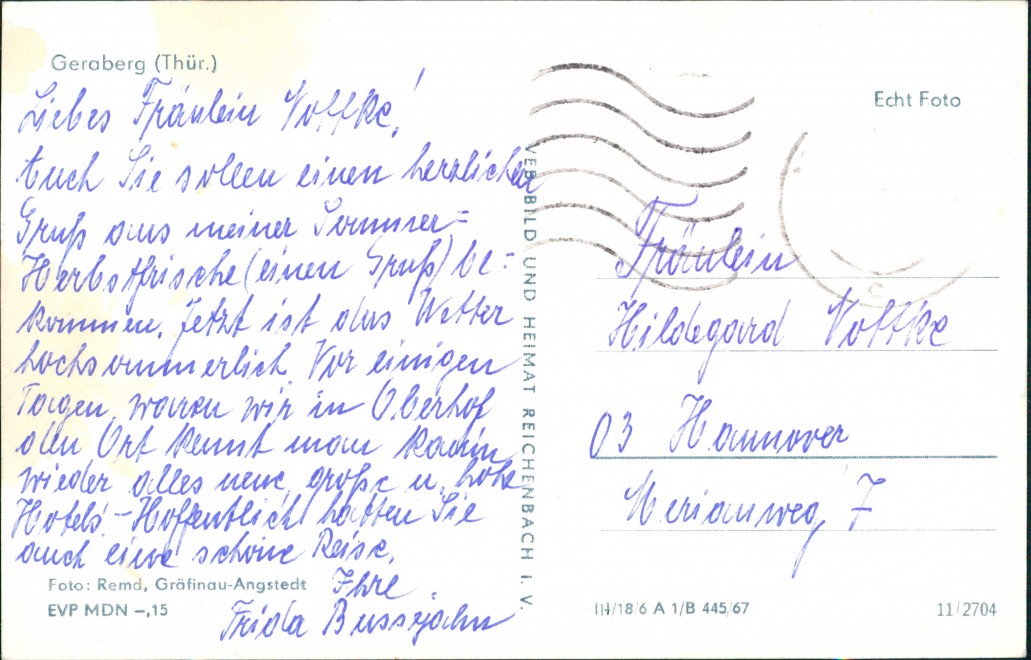 Geraberg (Thür.)
Liebes Fräulein Nottke!
Auch Sie sollen einen herzlichen
Gruß aus meiner Sommer=
Herbstfrische (einen Gruß) be=
kommen. Jetzt ist das Wetter
hochsommerlich Vor einigen
Tagen waren wir in Oberhof
den Ort kennt man kaum
wieder alles neue große u. hohe
Hotels – Hoffentlich hatten Sie
auch eine schöne Reise.
Ihre
Frida Bussejahn
Foto: Remd, Gräfinau-Angstedt
EVP MDN –,15
VEB BILD UND HEIMAT REICHENBACH I. V.
Echt Foto
Fräulein
Hildegard Nottke
03 Hannover
Merianweg 7
III/18/6 A 1/B 445/67
11/2704